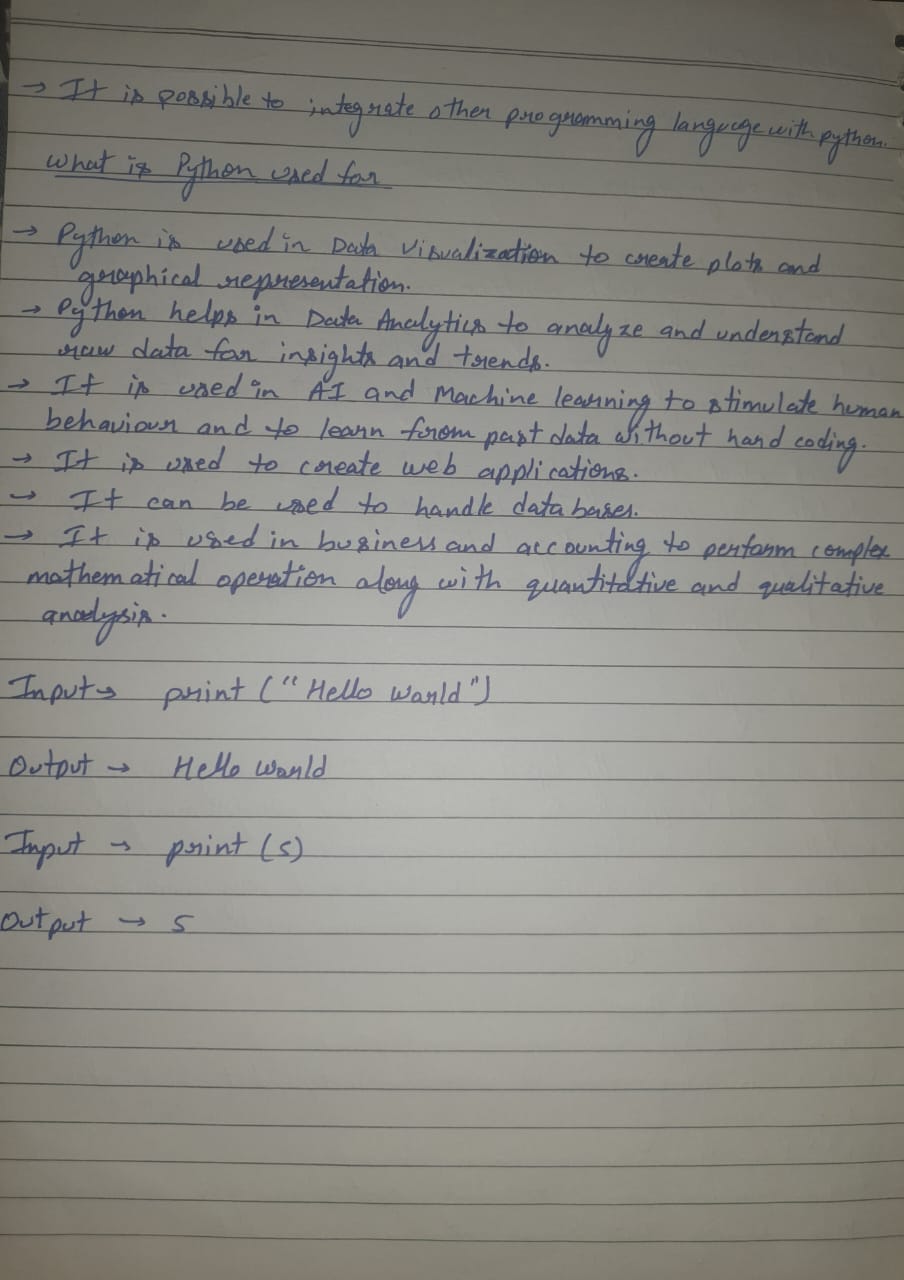 → It is possible to integrate other programming language with python.
What is Python used for
→ Python is used in Data Visualization to create plots and
graphical representation.
→ Python helps in Data Analytics to analyze and understand
raw data for insights and trends.
→ It is used in AI and Machine learning to stimulate human
behaviour and to learn from past data without hand coding.
→ It is used to create web applications.
→ It can be used to handle databases.
→ It is used in business and accounting to perform complex
mathematical operation along with quantitative and qualitative
analysis.
Input → print ("Hello World")
Output → Hello World
Input → print (5)
Output → 5